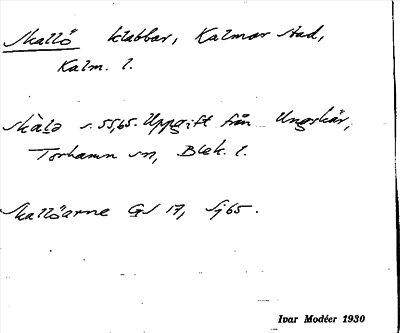 Skallö klabbar, Kalmar stad,
Kalm. l.
skàlə s. 55, 65. Uppgift från Ungskär,
Torhamn sn, Blek. l.
Skallöarne GS 17, Sj 65.
Ivar Modéer 1930